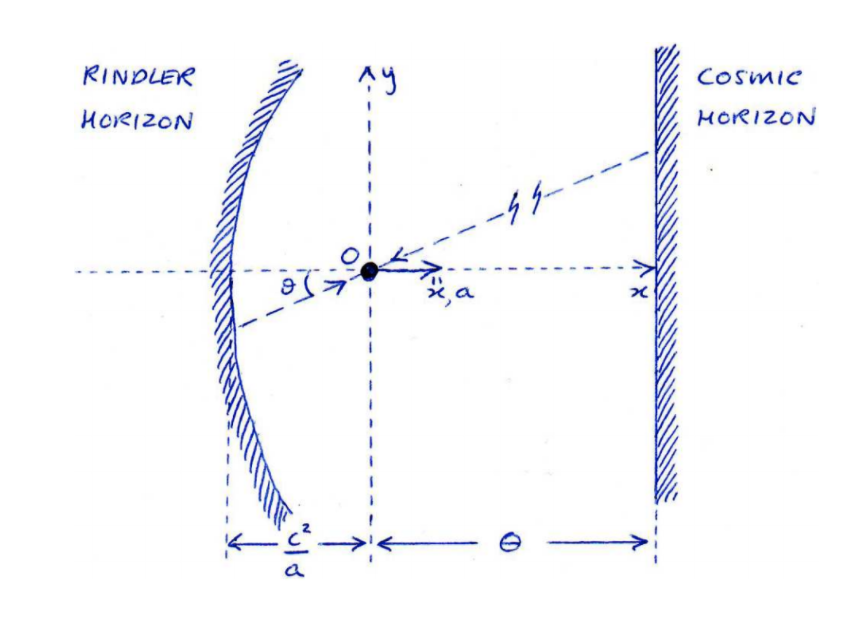 RINDLER
HORIZON
y
COSMIC
HORIZON
O
θ
ẍ, a
x
c²
a
Θ